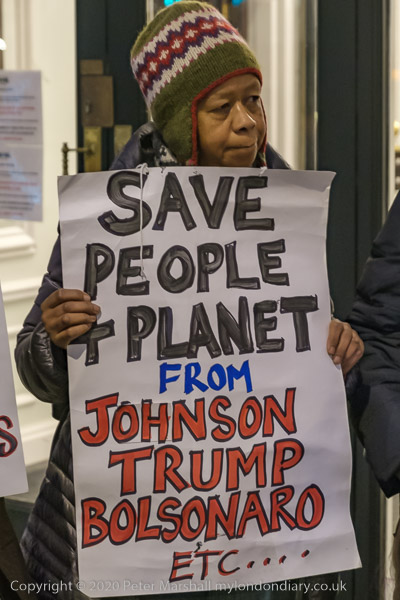 SAVE
PEOPLE
+ PLANET
FROM
JOHNSON
TRUMP
BOLSONARO
ETC.....
Copyright © 2020 Peter Marshall mylondondiary.co.uk